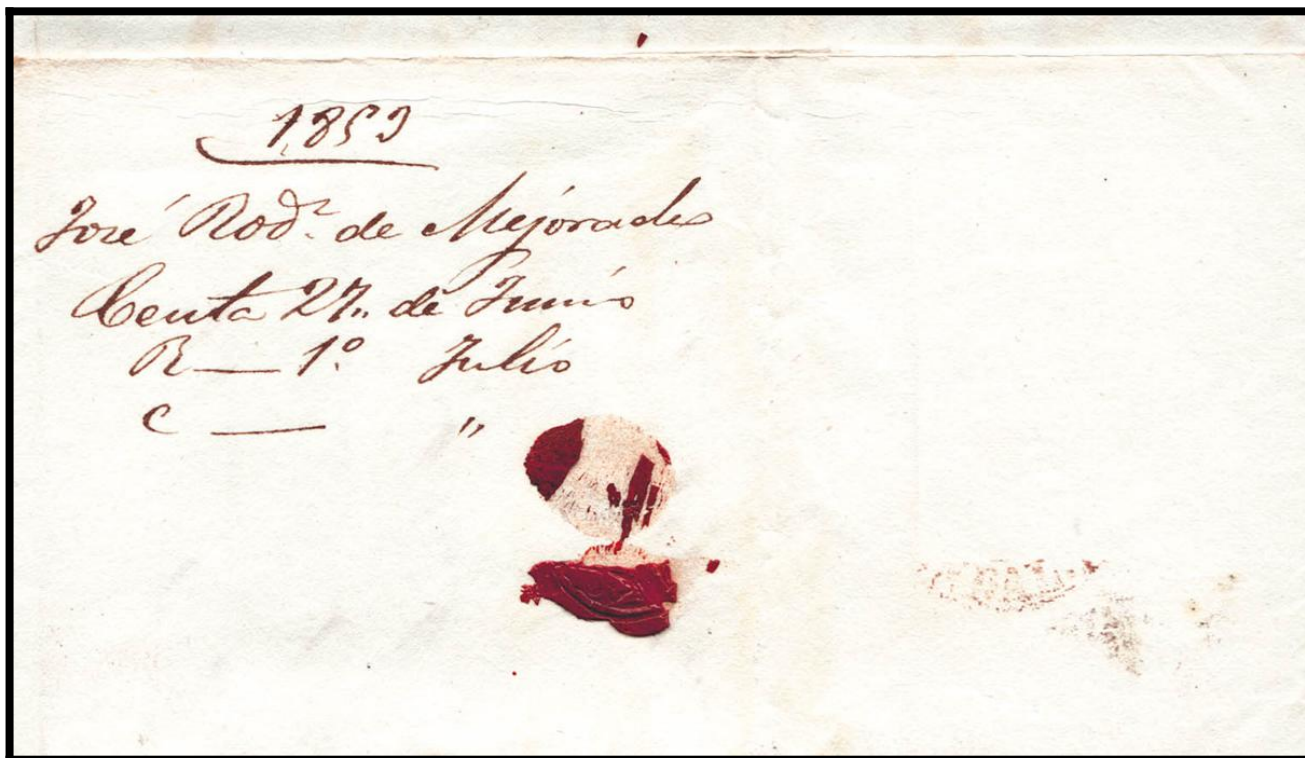 1853
José Rodz. de Mejorada
Ceuta 27,, de Junio
R — 1º Julio
C — "